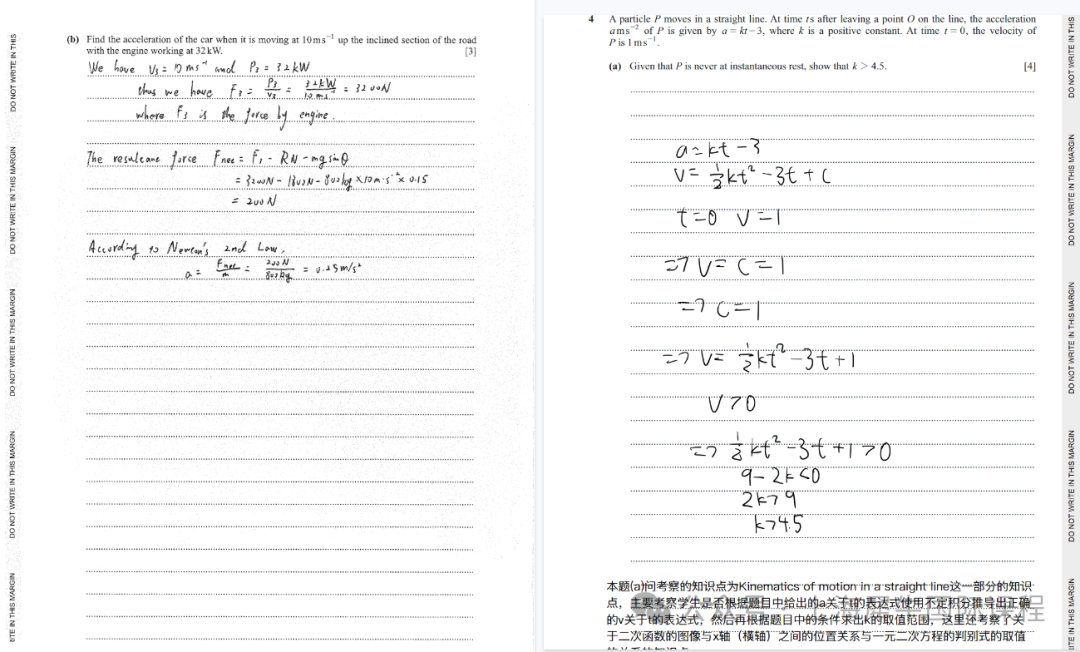 DO NOT WRITE IN THIS
DO NOT WRITE IN THIS MARGIN
DO NOT WRITE IN THIS MARGIN
DO NOT WRITE IN THIS MARGIN
ITE IN THIS MARGIN
(b) Find the acceleration of the car when it is moving at 10 m s⁻¹ up the inclined section of the road
with the engine working at 32 kW. [3]
We have V₃ = 10 ms⁻¹ and P₃ = 32 kW
thus we have F₃ = P₃/V₃ = 32kW/10 ms⁻¹ = 3200N
where F₃ is the force by engine.
The resultant force Fnet = F₃ - RN - mg sinθ
= 3200N - 1800N - 800kg × 10m·s⁻² × 0.15
= 200 N
According to Newton's 2nd Law,
a = Fnet/m = 200N/800kg = 0.25m/s²
4 A particle P moves in a straight line. At time t s after leaving a point O on the line, the acceleration
a m s⁻² of P is given by a = kt − 3, where k is a positive constant. At time t = 0, the velocity of
P is 1 m s⁻¹.
(a) Given that P is never at instantaneous rest, show that k > 4.5. [4]
a = kt - 3
V = ½kt² - 3t + C
t = 0 V = 1
=> V = C = 1
=> C = 1
=> V = ½kt² - 3t + 1
V > 0
=> ½kt² - 3t + 1 > 0
9 - 2k < 0
2k > 9
k > 4.5
本题(a)问考察的知识点为Kinematics of motion in a straight line这一部分的知识
点，主要考察学生是否根据题目中给出的a关于t的表达式使用不定积分推导出正确
的v关于t的表达式，然后再根据题目中的条件求出k的取值范围，这里还考察了关
于二次函数的图像与x轴（横轴）之间的位置关系与一元二次方程的判别式的取值
DO NOT WRITE IN THIS
DO NOT WRITE IN THIS MARGIN
DO NOT WRITE IN THIS MARGIN
DO NOT WRITE IN THIS MARGIN
ITE IN THIS MARGIN